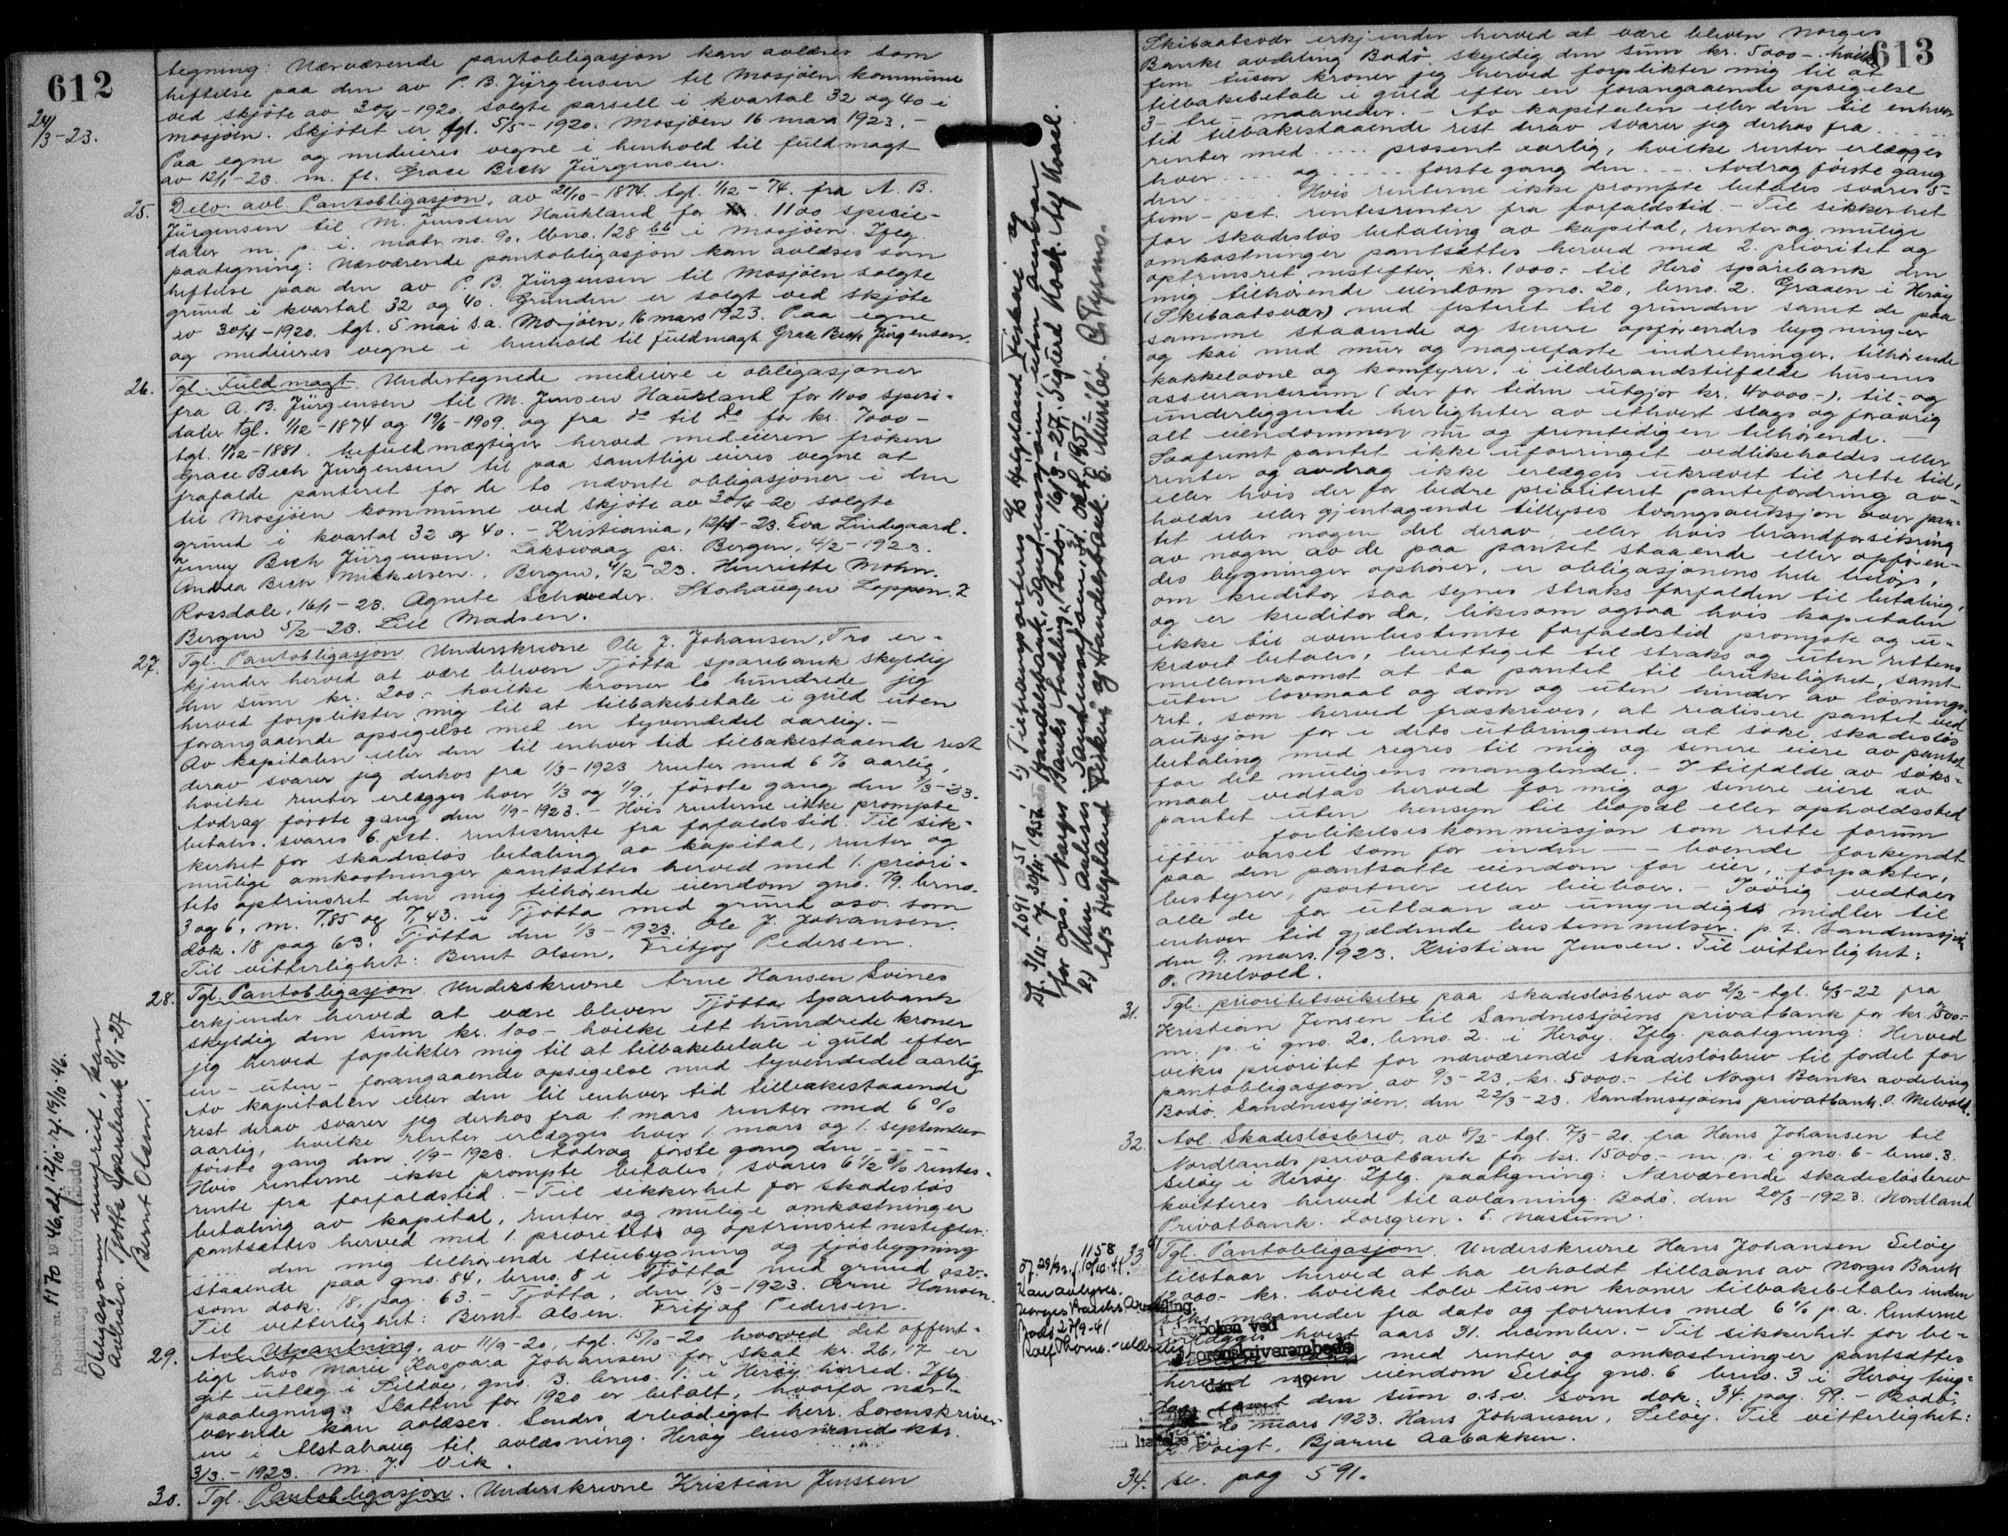 612
24/3-23.
tegning: Nærværende pantobligasjon kan avlæses som
heftelse paa den av P. B. Jürgensen til Mosjöen kommune
ved skjöte av 30/4-1920 solgte parsell i kvartal 32 og 40 i
Mosjöen. Skjötet er tgl. 5/5-1920. Mosjöen 16 mars 1923.-
Paa egne og medeieres vegne i henhold til fuldmagt
av 12/1-23. m. fl. Grace Bech Jürgensen.
25. Delv. avl. Pantobligasjon, av 21/10-1874 tgl. 1/12-74. fra A. B.
Jürgensen til M. Jenssen Haukland for 1100 specie-
daler m. p. i. matr. no. 90. lbno. 128 bb i Mosjöen. Iflg.
paategning: Nærværende pantobligasjon kan avlæses som
heftelse paa den av P. B. Jürgensen til Mosjöen solgte
grund i kvartal 32 og 40. Grunden er solgt ved skjöte
av 30/4-1920. tgl. 5 mai s.a. Mosjöen, 16 mars 1923. Paa egne
og medeieres vegne i henhold til fuldmagt Grace Bech Jürgensen.
26. Tgl. Fuldmagt. Undertegnede medeiere i obligasjoner
fra A. B. Jürgensen til M. Jensen Haukland for 1100 speci-
daler tgl. 1/12-1874 og 19/6-1909. og fra do til do for kr. 7000-
tgl. 1/12-1881. befuldmægtiger herved medeieren fröken
Grace Bech Jürgensen til paa samtlige eieres vegne at
frafalde panteret for de to nævnte obligasjoner i den
til Mosjöen kommune ved skjöte av 30/4-20 solgte
grund i kvartal 32 og 40. - Kristiania, 12/1-23. Eva Lindegaard.
Jenny Bech Jürgensen. Laksevaag pr. Bergen, 4/2-1923.
Andrea Bech Mickelsen. Bergen, 4/2-23. Henriette Mohn.
Rossdale, 16/1-23. Agnete Schrøeder. Storhaugen Loppen.
Bergen 5/2-23. Lill Madsen.
27. Tgl. Pantobligasjon. Underskrevne Ole J. Johansen, Tro er-
kjender herved at være bleven Tjötta sparebank skyldig
den sum kr. 200.- hvilke kroner to hundrede jeg
herved forplikter mig til at tilbakebetale i guld uten
forangaaende opsigelse med en tyvendedel aarlig.-
Av kapitalen eller den til enhver tid tilbakestaaende rest
derav svarer jeg derhos fra 1/3-1923 renter med 6 % aarlig,
hvilke renter erlægges hver 1/3 og 1/9, förste gang den 1/3-23.
Avdrag förste gang den 1/9-1923.- Hvis renterne ikke prompte
betales, svares 6 pct. rentesrente fra forfaldstid. Til sik-
kerhet for skadeslös betaling av kapital, renter og
mulige omkostninger pantsættes herved med 1. priori-
tets optrinsret den mig tilhörende eiendom gno. 79. brno.
3 og 6, m. 7,85 og 7,43. i Tjötta med grund osv. som
dok. 18 pag 63. Tjötta den 1/3-1923. Ole J. Johansen.
Til vitterlighet: Bernt Olsen. Fritjof Pedersen.
28. Tgl. Pantobligasjon. Underskrevne Arne Hansen Svines
erkjender herved at være bleven Tjötta Sparebank
skyldig den sum kr. 100- hvilke ett hundrede kroner
jeg herved forplikter mig til at tilbakebetale i guld efter
en - uten - forangaaende opsigelse med tyvendedel aarlig
Av kapitalen eller den til enhver tid tilbakestaaende
rest derav svarer jeg derhos fra 1. mars renter med 6 %
aarlig, hvilke renter erlægges hver 1. mars og 1. september
förste gang den 1/9-1923. Avdrag förste gang den - - - - -
Hvis renterne ikke prompte betales, svares 6 1/2 % rentes-
rente fra forfaldstid. - Til sikkerhet for skadeslös
betaling av kapital, renter og mulige omkostninger
pantsættes herved med 1. prioritets og optrinsret nestefter:
........ den mig tilhörende stuebygning og fjösbygning
staaende paa gno. 84, brno. 8 i Tjötta med grund osv.-
som dok. 18, pag. 63. - Tjötta, den 1/3-1923. Arne Hansen.
Til vitterlighet: Bernt Olsen. Fritjof Pedersen.
Obligasjonen innfriet, kan
avlyses. Tjötta Sparebank 8/1-27
Bernt Olsen.
Dagbok nr. 1170 1946, dl. 12/10. ty. 19/10.46.
Alstahaug sorenskriverembede
29. Avl. Utpantning, av 11/9-20, tgl. 15/10-20 hvorved det offent-
lige hos Marie Kaspara Johansen for skat kr. 26,17 er
git utlæg i Sildöe, gno. 3. brno. 1. i Heröy herred. Iflg.
paategning: Skatten for 1920 er betalt, hvorfor nær-
værende kan avlæses. Sendes ærbödigst herr. Sorenskrive-
en i Alstahaug til avlæsning. Heröy lensmandsktr.
3/3.-1923. M. J. Vik.
30. Tgl. Pantobligasjon. Underskrevne Kristian Jenssen
613
Skibaatsvær erkjender herved at være bleven Norges
Banks avdeling Bodö skyldig den sum kr. 5000- hvilke
fem tusen kroner jeg herved forplikter mig til at
tilbakebetale i guld efter en forangaaende opsigelse
3- tre - maaneder. - Av kapitalen eller den til enhver
tid tilbakestaaende rest derav svarer jeg derhos fra .....
renter med .... prosent aarlig, hvilke renter erlægges
hver .... og ..... förste gang den .... Avdrag förste gang
den ..... Hvis renterne ikke prompte betales svares 5-
fem - pct. rentesrenter fra forfaldstid. - Til sikkerhet
for skadeslös betaling av kapital, renter og mulige
omkostninger pantsættes herved med 2. prioritet og
optrinsret nestefter kr. 1000.- til Herö sparebank den
mig tilhörende eiendom gno. 20, brno. 2. Graaen i Heröy
(Skibaatsvær) med festeret til grunden samt de paa
samme staaende og senere opförendes bygninger
og kai med mur og nagelfaste indretninger, tilhörende
kakkelovne og komfyrer, i ildebrandstilfælde husenes
assurancesum (der for tiden utgjör kr. 40000-), til- og
underliggende herligheter av ethvert slags og forövrig
alt eiendommen nu og fremtidigen tilhörende. -
Saafremt pantet ikke uforringet vedlikeholdes eller
renter og avdrag ikke erlægges ukrævet til rette tid,
eller hvis der for bedre prioriteret pantefordring av-
holdes eller gjentagende tillyses tvangsauksjon over pan-
tet eller nogen del derav, eller hvis brandforsikring
av nogen av de paa pantet staaende eller opfören-
des bygninger ophörer, er obligasjonens hele belöp,
om kreditor saa synes straks forfalden til betaling,
og er kreditor da, likesom ogsaa hvis kapitalen
ikke til ovenbestemte forfaldstid prompte og u-
krævet betales, berettiget til straks og uten rettens
mellemkomst at ta pantet til brukelighet, samt
uten lovmaal og dom og uten hinder av lösnings-
ret, som herved fraskrives, at realisere pantet ved
auksjon for i dets utbringende at söke skadeslös
betaling med regres til mig og senere eiere av pantet
for det muligens manglende. - I tilfælde av söks-
maal vedtas herved for mig og senere eiere av
pantet uten hensyn til bopæl eller opholdssted
........ forlikelseskommissjon som rette forum
efter varsel som for inden - - boende forkyndt
paa den pantsatte eiendom for eier, forpakter,
bestyrer, portner eller beboer. - Forövrig vedtaes
alle de for utlaan av umyndiges midler til
enhver tid gjældende bestemmelser. p. t. Sandnessjöen
den 9. mars. 1923. Kristian Jensen. Til vitterlighet:
O. Melvold.
Dj. 3/11 1091 1951 ty 30/11 1951. 1) Tiltransporteres A/S Helgeland Fiskeri og
Handelsbank, Sandnessjöen, uten ansvar
for oss. Norges Banks Avdeling, Bodö, 16/3-27. Sigurd Koch. Alf Kosel.
2) Kan avlyses. Sandnessjöen, 31. okt. 1951.
A/S Helgeland Fiskeri og Handelsbank.
31. Tgl. prioritetsvikelse paa skadeslösbrev av 2/2- tgl. 6/3-22 fra
Kristian Jensen til Sandnessjöens privatbank for kr. 7500.-
m. p. i gno. 20. brno. 2. i Heröy. Iflg. paategning: Herved
vikes prioritet for nærværende skadeslösbrev til fordel for
pantobligasjon av 9/3-23, kr. 5000.- til Norges Banks avdeling
Bodö. Sandnessjöen, den 22/3-23. Sandnessjöens privatbank. O. Melvold.
32. Avl. Skadeslösbrev, av 8/2- tgl. 7/3-20. fra Hans Johansen til
Nordlands privatbank for kr. 15000.- m. p. i gno. 6- brno. 3.
Selöy i Heröy. Iflg. paategning: Nærværende skadeslösbrev
kvitteres herved til avlæsning. Bodö. den 20/3-1923. Nordland
Privatbank. Forsgren. E. Nassum.
33. Tgl. Pantobligasjon. Underskrevne Hans Johansen Selöy
tilstaar herved at ha erholdt tillaans av Norges Bank
12000- kr. hvilke tolv tusen kroner tilbakebetales inden
seks maaneder fra dato og forrentes med 6 % p.a. Renterne
erlægges hvert aars 31. december. - Til sikkerhet for be-
med renter og omkostninger pantsættes
herved min eiendom Selöy gno. 6 brno. 3 i Heröy ting-
lag samt den sum o.s.v. som dok. 34. pag. 99. - Bodö,
den 20 mars 1923. Hans Johansen, Selöy. Til vitterlighet:
Voigt. Bjarne Aabakken.
1158
Kan avlyses.
Norges Banks Avdeling.
Bodö 27/9-41
i dagboken ved
sorenskriverembede
den 19
34. se. pag 591.